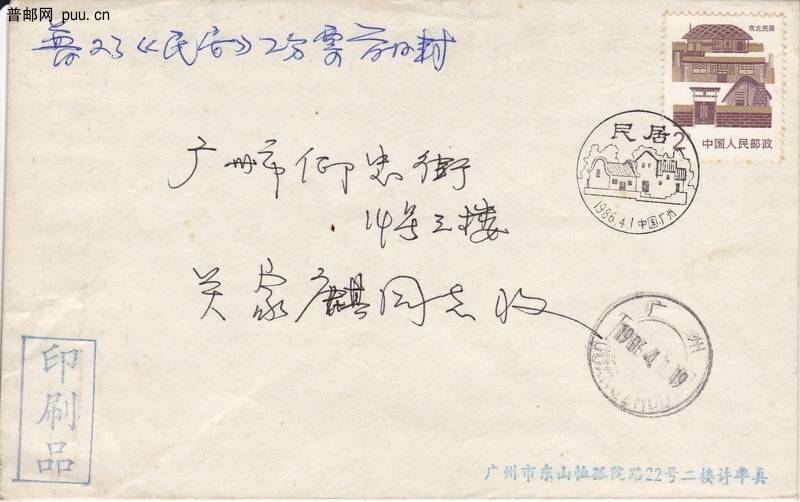 普邮网 puu.cn
普23《民居》2分票首日封
东北民居
2
中国人民邮政
民居
1986.4.1 中国.广州
广州市仰忠街
14号三楼
关家麒同志收
广州
1986.4.1.19
GUANGZHOU
印刷品
广州市东山恤孤院路22号二楼许率真